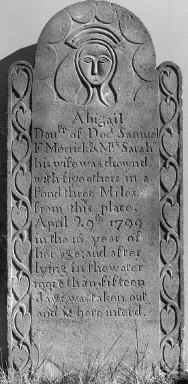 Abigail
Daut of Doct Samuel
F Merrick & Mrs Sarah
his wife was drownd
with five others in a
Pond three Miles
from this place,
April 29th 1799
in the 16 year of
her age; and after
lying in the water
more than fifteen
days was taken out
and & here interd.